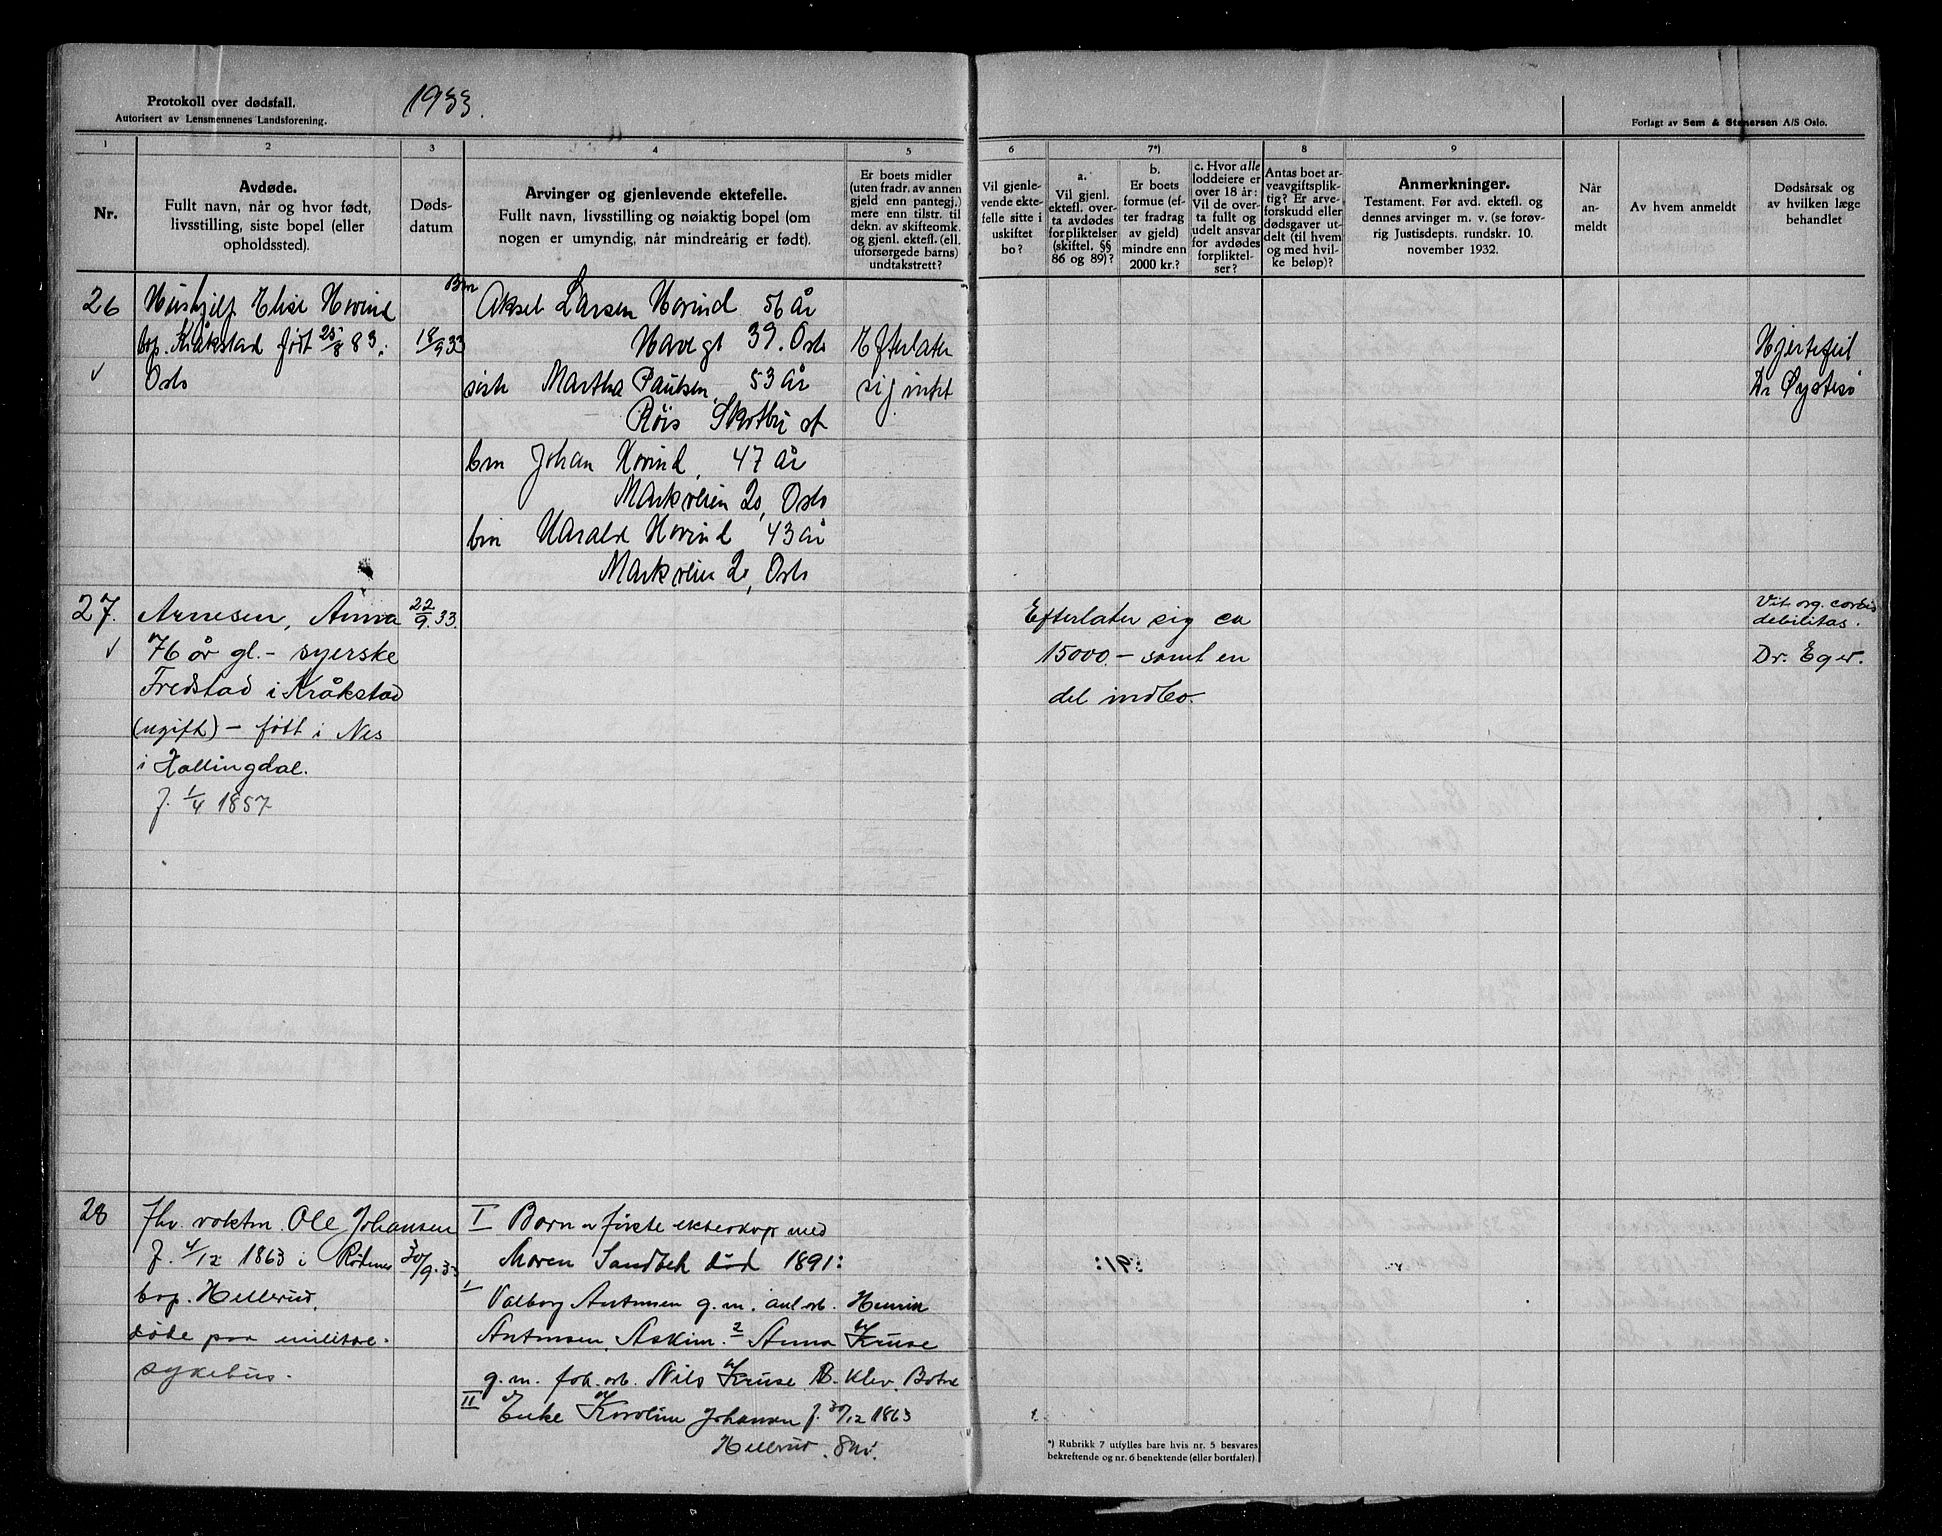 Protokoll over dødsfall.
Autorisert av Lensmennenes Landsforening.
1933.
Forlagt av Sem & Stenersen A/S Oslo.
1
2
3
4
5
6
7*)
8
9
Nr.
Avdøde.
Fullt navn, når og hvor født,
livsstilling, siste bopel (eller
opholdssted).
Døds-
datum
Arvinger og gjenlevende ektefelle.
Fullt navn, livsstilling og nøiaktig bopel (om
nogen er umyndig, når mindreårig er født).
Er boets midler
(uten fradr. av annen
gjeld enn pantegj.)
mere enn tilstr. til
dekn. av skifteomk.
og gjenl. ektef. (ell.
uforsørgede barns)
undtakstrett?
Vil gjenle-
vende ekte-
felle sitte i
uskiftet
bo?
a.
Vil gjenl.
ektefl. over-
ta avdødes
forpliktelser
(skiftel. §§
86 og 89)?
b.
Er boets
formue (ef-
ter fradrag
av gjeld)
mindre enn
2000 kr.?
c. Hvor alle
loddeiere er
over 18 år:
Vil de over-
ta fullt og
udelt ansvar
for avdødes
forpliktel-
ser?
Antas boet ar-
veavgiftsplik-
tig? Er arve-
forskudd eller
dødsgaver ut-
delt (til hvem
og med hvil-
ke beløp)?
Anmerkninger.
Testament. Før avd. ektefl. og
dennes arvinger m. v. (se forøv-
rig Justisdepts. rundskr. 10.
november 1932.
Når
an-
meldt
Av hvem anmeldt
Dødsårsak og
av hvilken læge
behandlet
26
Hushjelp Elise Hovind
bop. Kråkstad født 25/8 83.
Oslo
18/9 33
Bror Aksel Larsen Hovind 56 år
Havegt 39. Oslo
søsk Martha Paulsen, 53 år
Röis Skotbu st
bm Johan Hovind, 47 år
Markveien 20, Oslo
bm Harald Hovind 43 år
Markveien 20, Oslo
Efterlater
sig intet
Hjertefeil
Dr Øystesø
27.
Arnesen, Anna
76 år gl. - syerske
Fredstad i Kråkstad
(ugift) - født i Nes
i Hallingdal.
f. 1/4 1857
22/9.33.
Efterlater sig ca
15000.- samt en
del indbo.
Vit. org. cordis
debilitas.
Dr. Eger.
28
fhv. voktm. Ole Johansen
f. 4/12 1863 i Rødenes
bop. Hellerud.
døde paa militær-
sykehus.
30/9.33
I Barn av første ekteskap med
Maren Sandbek død 1891:
1 Valborg Antonsen g.m. anl.arb. Henrik
Antonsen, Askim. 2 Anna Kruse
g.m. fab.arb. Nils Kruse B. Klev. Botne
II Enke Karoline Johansen f. 30/12 1863
Hellerud. Ski.
*) Rubrikk 7 utfylles bare hvis nr. 5 besvares
bekreftende og nr. 6 benektende (eller bortfaller)